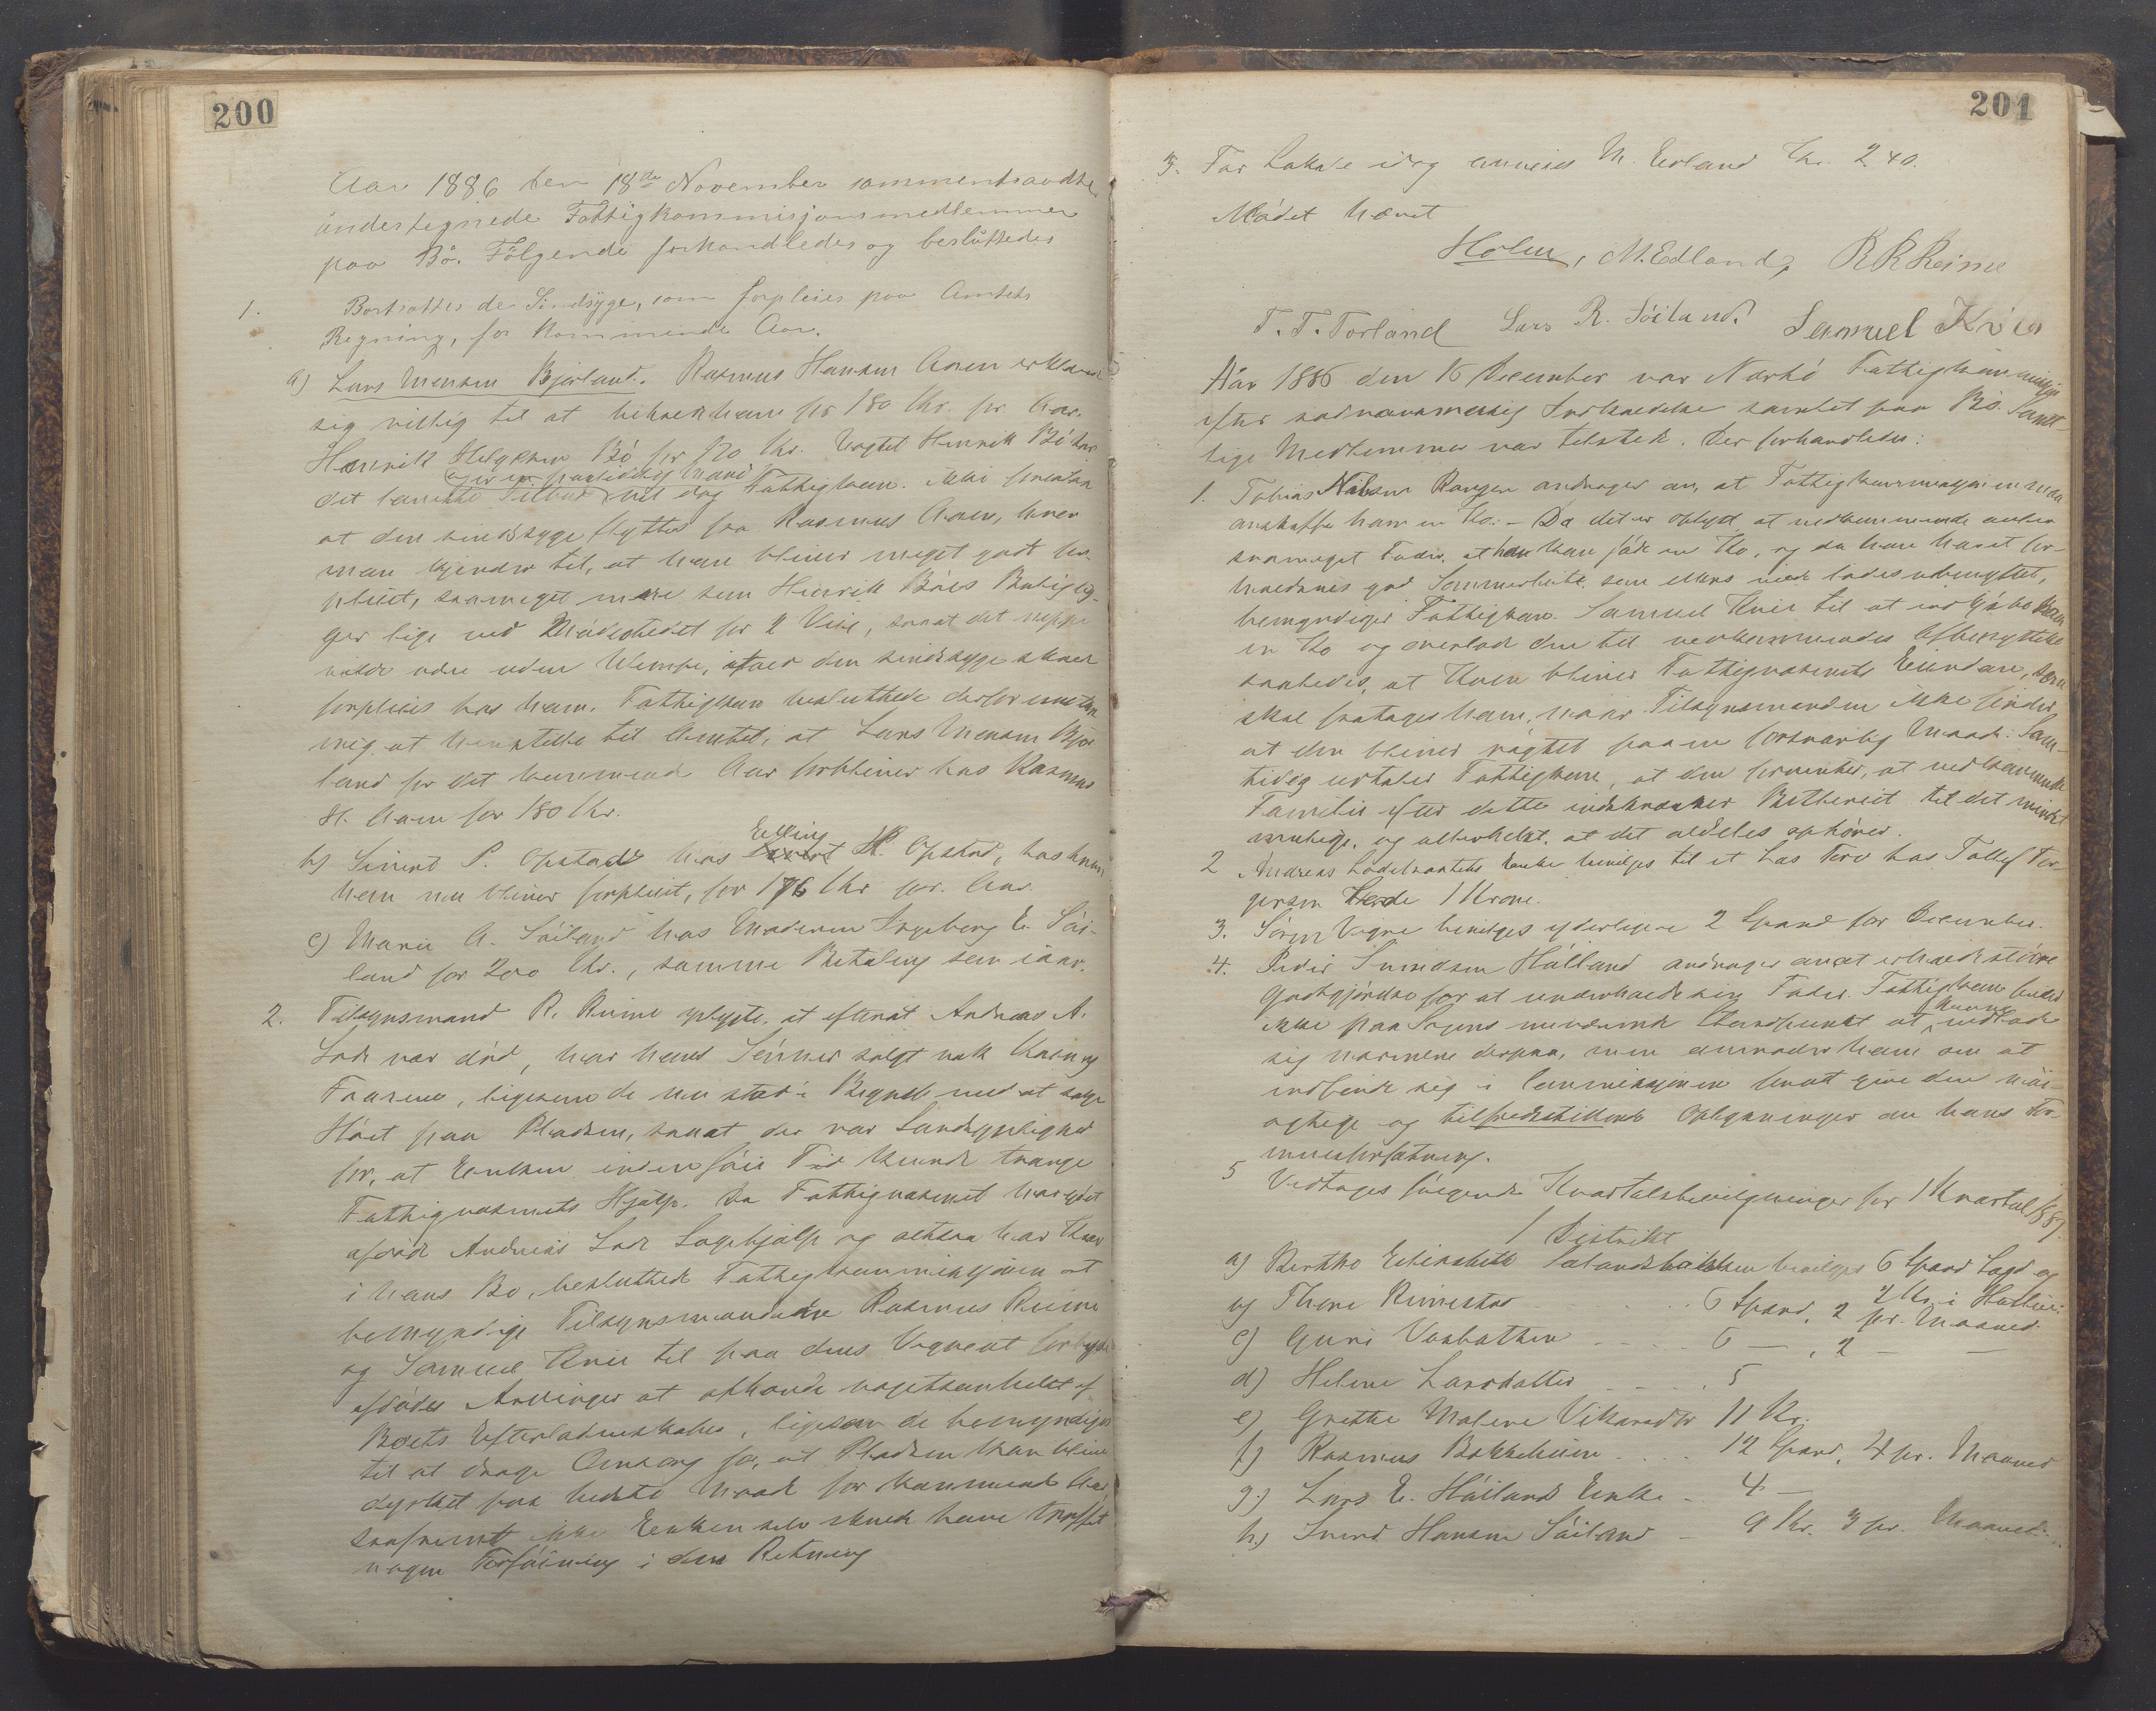 200
Aar 1886 den 18de November sammentraadte
undertegnede Fattigkommisjonsmedlemmer
paa Bö. Fölgende forhandledes og besluttedes
1. Bortsattes de Sindsyge, som forpleies paa Amtets
Regning, for kommende Aar.
a) Lars Monsen Bjorland. Rasmus Hansen Aaen erklærede
sig villig til at beholde ham for 180 Kr. pr. Aar.
Henrik Helgesen Bö for 170 Kr. Uagtet Henrik Bö har
det laveste Tilbud og er en paalidelig Mand vil dog Fattigkom. ikke foretrække
at den sindssyge flyttes fra Rasmus Aaen, hvor
man kjender til, at han bliver meget godt for-
pleiet, saameget mere som Henrik Böes Bolig lig-
ger lige ved Mödestedet for 2 Veie, saaat det neppe
vilde være uden Ulempe, ifald den sindssyge skulde
forpleies hos ham. Fattigkom besluttede derfor enstem
mig at henstille til Amtet, at Lars Monsen Bjor
land for det kommende Aar forbliver hos Rasmus
H. Aaen for 180 Kr.
b) Sivert P. Opstad hos Elling H. Opstad, hos hvem
han nu bliver forpleiet, for 176 Kr pr. Aar.
c) Marie A. Söiland hos Moderen Ingeborg E. Söi-
land for 200 Kr., samme Betaling som iaar.
2. Tilsynsmand R. Reime oplyste, at efterat Andreas A.
Lode var död, har hans Sönner solgt nok Korn og
Faarene, ligesom de nu stod i Begreb med at sælge
Höet paa Pladsen, saaat der var Sandsynlighed
for, at Enken inden föie Tid kunde trænge
Fattigvæsenets Hjælp. Da Fattigvæsenet har ydet
afdöde Andreas Lode Lægehjælp og altsaa har Krav
i hans Bo, besluttede Fattigkommissjonen at
bemyndige Tilsynsmændene Rasmus Reime
og Samuel Kvie til paa dens Vegne at forbyde
afdödes Arvinger at afhænde nogetsomhelst af
Boets Efterladenskaber, ligesom de bemyndiges
til at drage Omsorg for, at Pladsen kan blive
dyrket paa bedste Maade for kommende Aar
saafremt ikke Enken selv skulde have truffet
nogen Forföining i den Retning
201
3. For Lokale idag anvises M. Edland Kr. 2 40.
Mödet hævet
Holm, M. Edland, R R Reime
T. T. Torland Lars R. Söiland. Samuel Kvia
Aar 1886 den 16 December var Nærbö Fattigkommission
efter sædvansmæssig Indkaldelse samlet paa Bö. Samt-
lige Medlemmer var tilstede. Der forhandledes:
1. Tobias Nilsen Rangen andrager om, at Fattigkommissjonen maa
anskaffe ham en Ko. - Da det er oplyst at vedkommende avler
saameget Foder, at han kan föde en Ko, og da han havet for-
holdsvis god Sommerbeite som ellers vilde lades ubenyttet,
bemyndiger Fattigkom. Samuel Kvie til at indkjöbe ham
en Ko og overlade den til vedkommendes Afbenyttelse
saaledes, at Koen bliver Fattigvæsenets Eiendom, som
skal fratages ham, naar Tilsynsmanden ikke finder
at den bliver rögtet paa en forsvarlig Maade. Sam-
tidig udtaler Fattigkom, at den forventer, at vedkommende
Familie efter dette indskrænker Betleriet til det mindst
mulige, og allerhelst, at det aldeles ophörer.
2 Andreas Lodetraatets Enke bevilges til et Læs Torv hos Tollef Tor-
gersen Lode 1 Krone.
3. Sören Vigre bevilges yderligere 2 Spand for December.
4. Peder Simonsen Hölland andrager om at erholde större
Godtgjörelse for at underholde sin Fader. Fattigkom finder
ikke paa Sagens nuværende Standpunkt at kunne indlade
sig nærmere derpaa, men anmoder ham om at
indfinde sig i Commissjonen for at give den nöi-
agtige og tilfredsstillende Oplysninger om hans For-
muesforfatning.
5 Vedtages fölgende Kvartalsbevilgninger for 1 Kvartal 1887.
1 Distrikt
a) Berthe Elisabeth Salandsbakken bevilges 6 Spand Lagd og
2 Kr. i Husleie
og Thore Rimestad . . . . 6 Spand, 2 pr. Maaned.
c) Guri Voxbakken . . . . 6 — , 2 — —
d) Helene Larsdatter . . . . 5
e) Grethe Malene Vikaredtr 11 Kr.
f) Rasmus Bakkeheien . . . . 12 Spand, 4 pr. Maaned
g.) Lars E. Höilands Enke - 4 —
h.) Sivert Hansen Söiland — 9 Kr. 3 pr. Maaned.